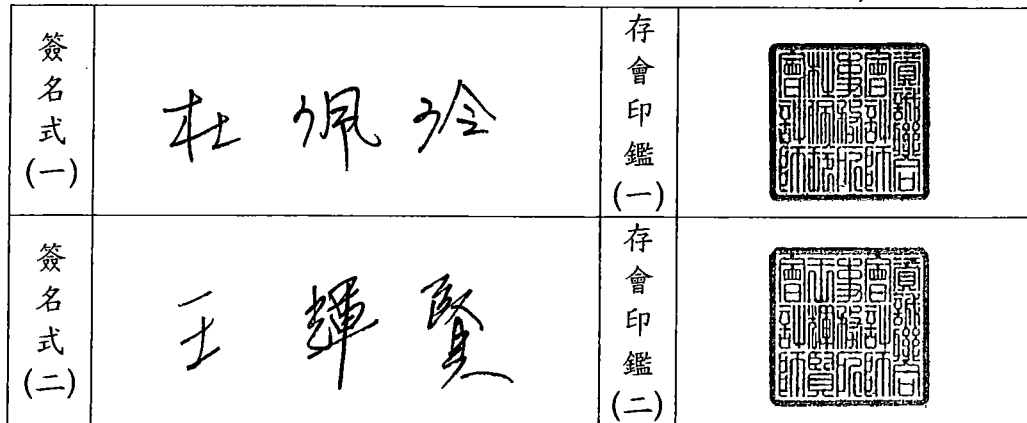 簽名式(一)
杜佩玲
存會印鑑(一)
資誠聯合
會計師
事務所
杜佩玲
會計師
簽名式(二)
王輝賢
存會印鑑(二)
資誠聯合
會計師
事務所
王輝賢
會計師